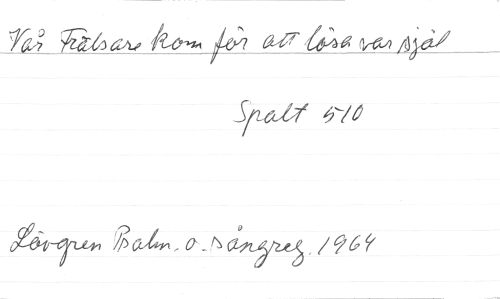 Vår Frälsare kom för att lösa var själ
Spalt 510
Lövgren Psalm. o. sångreg. 1964